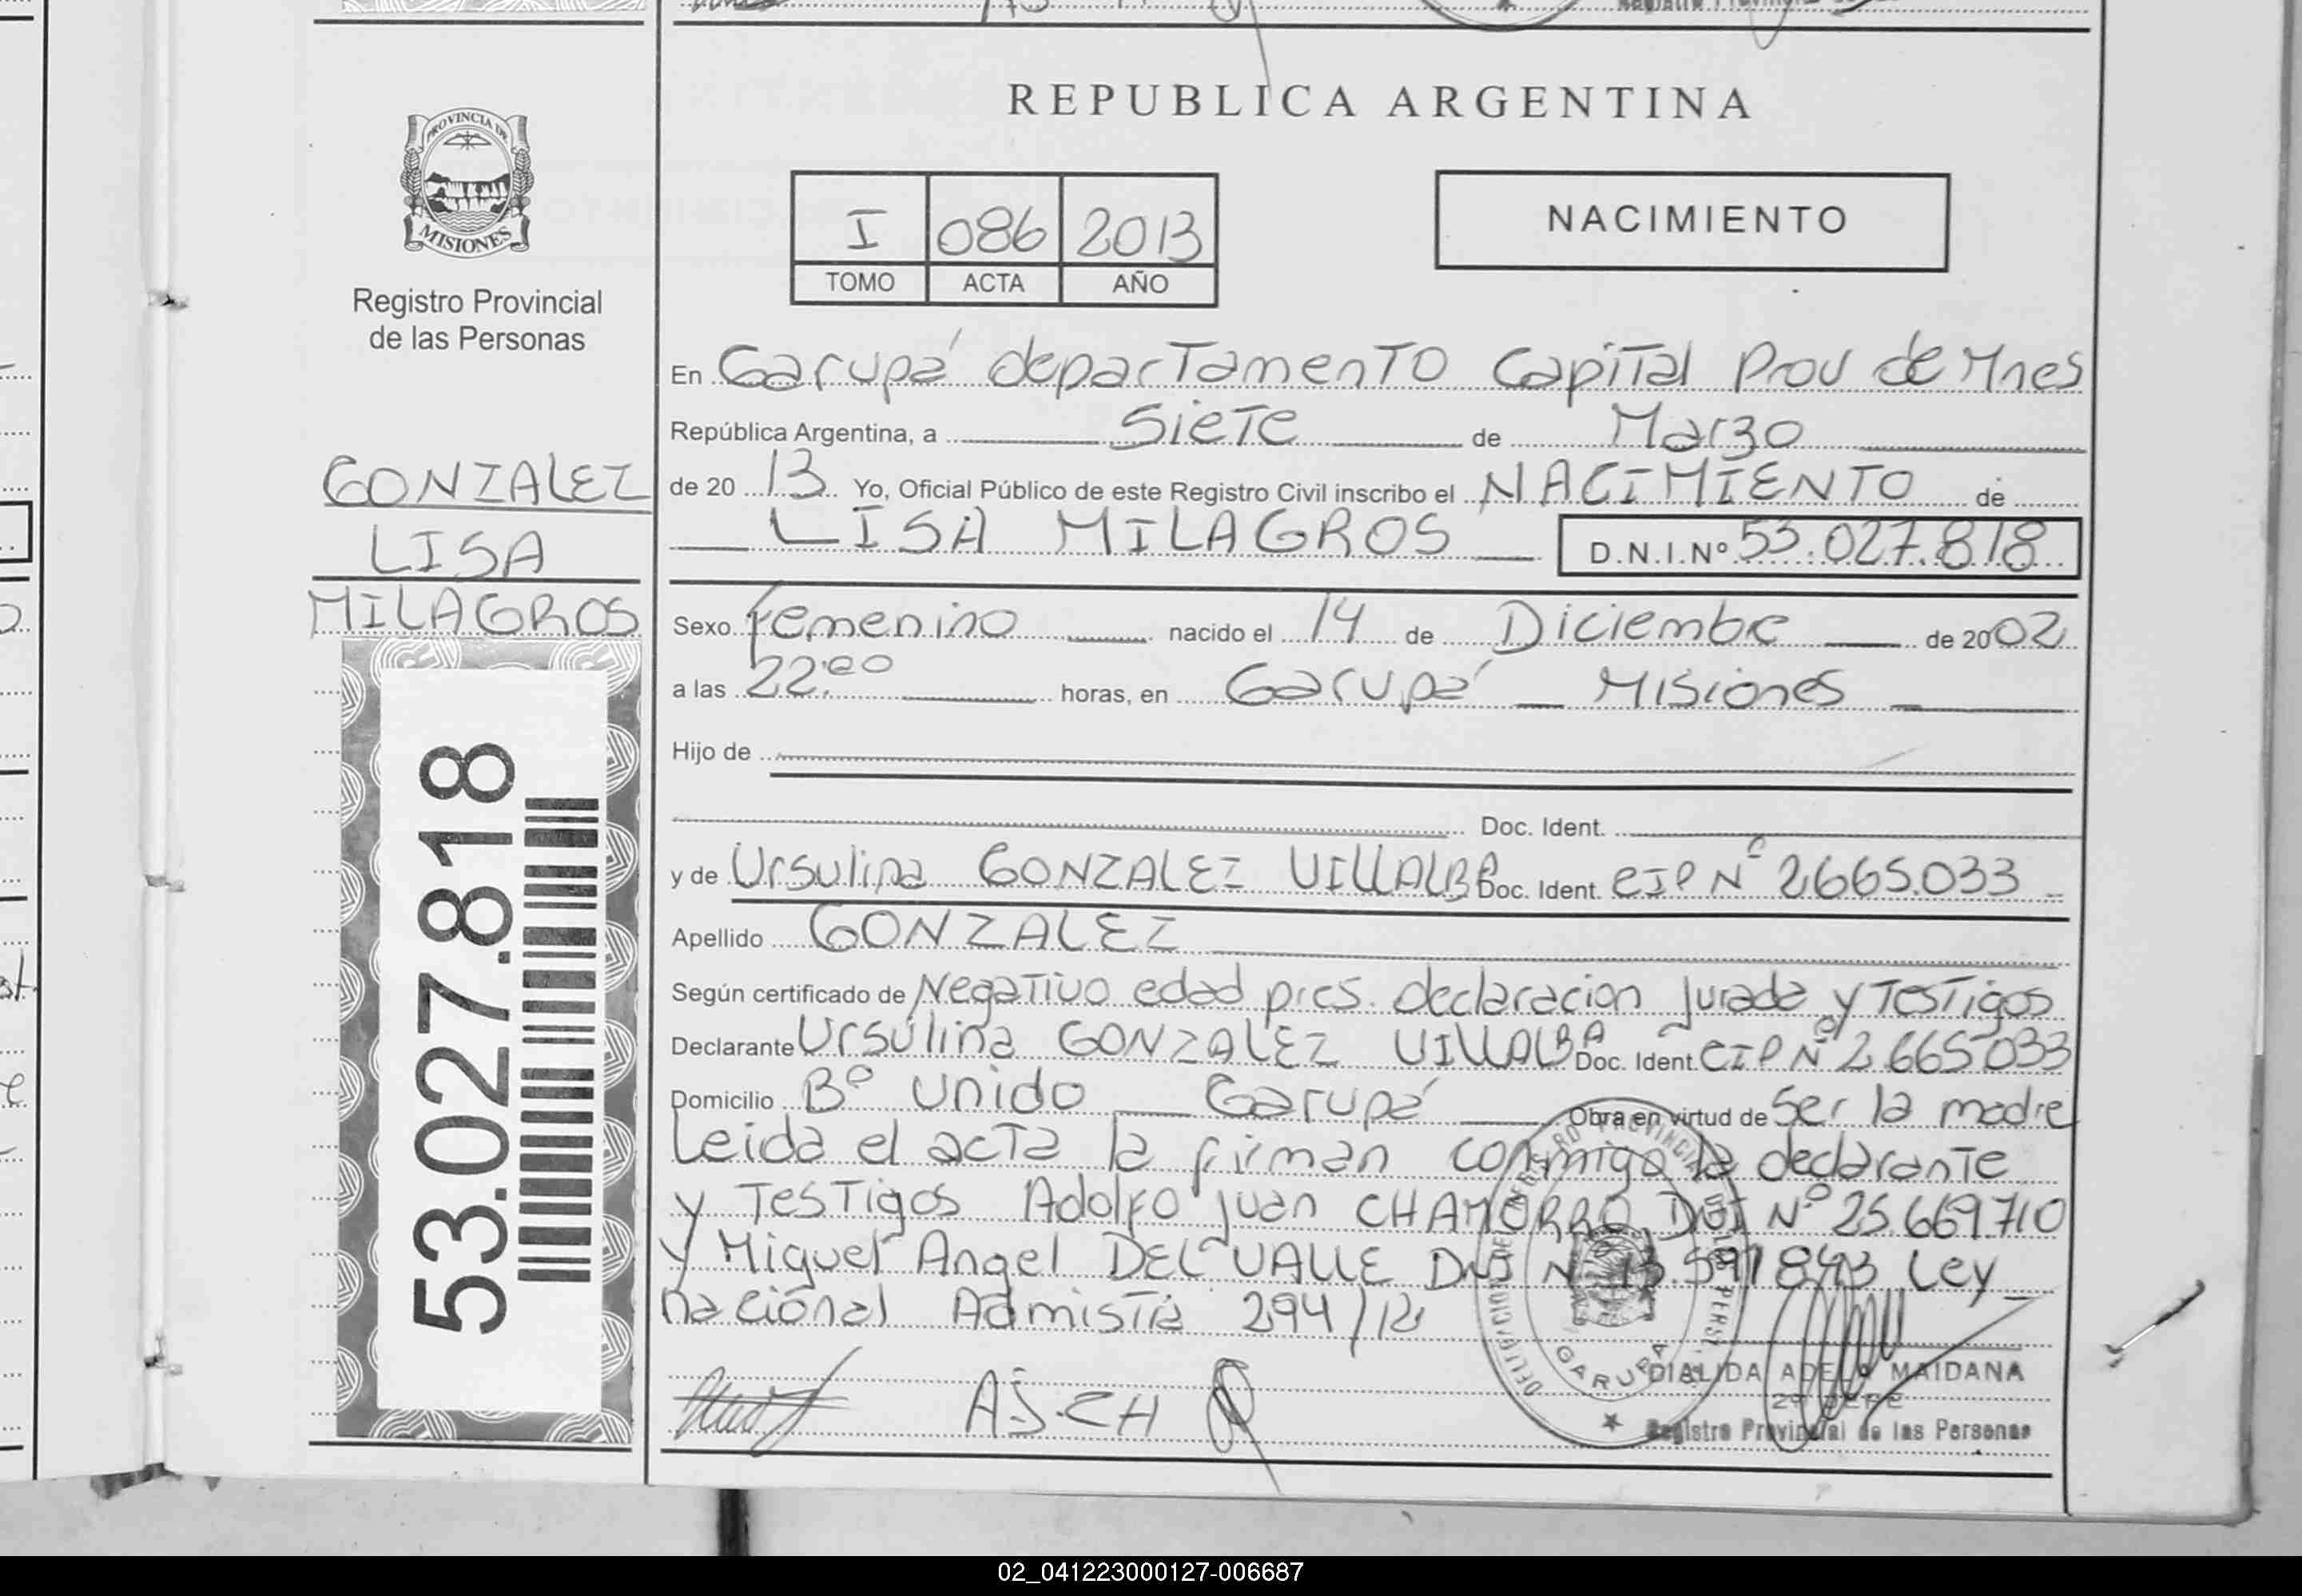 REPUBLICA ARGENTINA
PROVINCIA DE
MISIONES
Registro Provincial
de las Personas
I 086 2013
TOMO ACTA AÑO
NACIMIENTO
GONZALEZ
LISA
MILAGROS
53.027.818
En Garupá departamento Capital Prov de Mnes
República Argentina, a siete de Marzo
de 2013 Yo, Oficial Público de este Registro Civil inscribo el NACIMIENTO de
LISA MILAGROS D.N.I.Nº 53.027.818
Sexo femenino nacido el 14 de Diciembre de 2002
a las 22:00 horas, en Garupá Misiones
Hijo de
Doc. Ident.
y de Ursulina GONZALEZ VILLALBA Doc. Ident. CIP Nº 2665.033
Apellido GONZALEZ
Según certificado de Negativo edad pres. declaracion Jurada y Testigos
Declarante Ursulina GONZALEZ VILLALBA Doc. Ident. CIP Nº 2.665.033
Domicilio Bº Unido Garupá Obra en virtud de Ser la madre
Leida el acta la firman conmigo la declarante
y Testigos Adolfo Juan CHAMORRO DNI Nº 25.669.710
y Miguel Angel DEL VALLE DNI Nº 13.597843 Ley
nacional Admistia 294/12
A.J.CH
GARUPA
DIALIDA ADELA MAIDANA
2º JEFE
Registro Provincial de las Personas
02_041223000127-006687